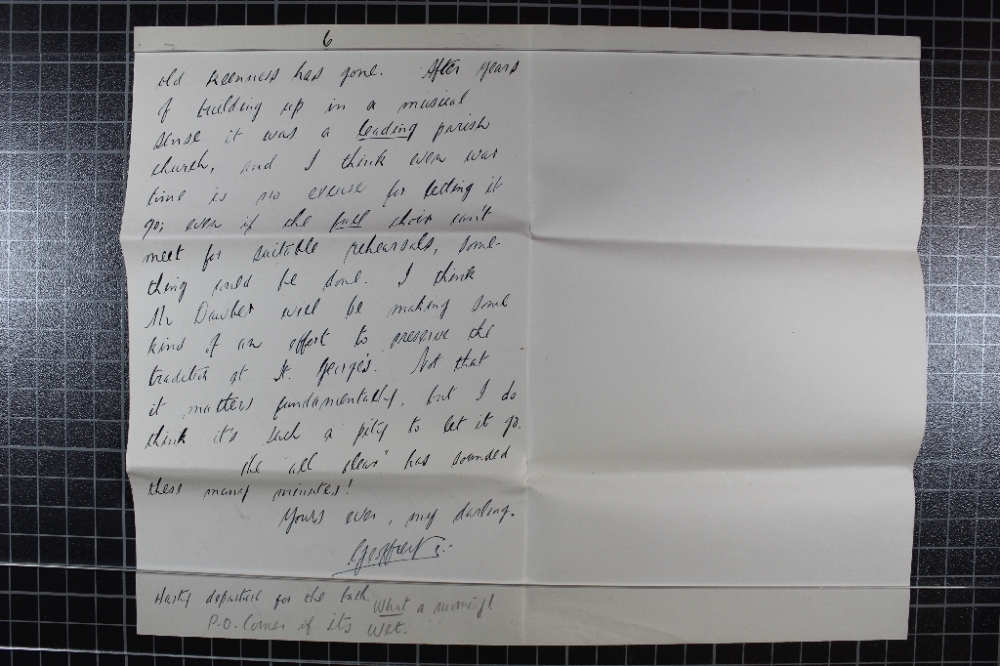 6
old keenness has gone. After years
of building up in a musical
sense it was a leading parish
church, and I think even war
time is no excuse for letting it
go; even if the full choir can't
meet for suitable rehearsals, some-
thing could be done. I think
Mr Dawber will be making some
kind of an effort to preserve the
tradition at St. George's. Not that
it matters fundamentally, but I do
think it's such a pity to let it go.
The "all clear" has sounded
these many minutes!
Yours ever, my darling.
Geoffrey
Hasty departure for the bath.
What a morning!
P.O. Corner if its wet.